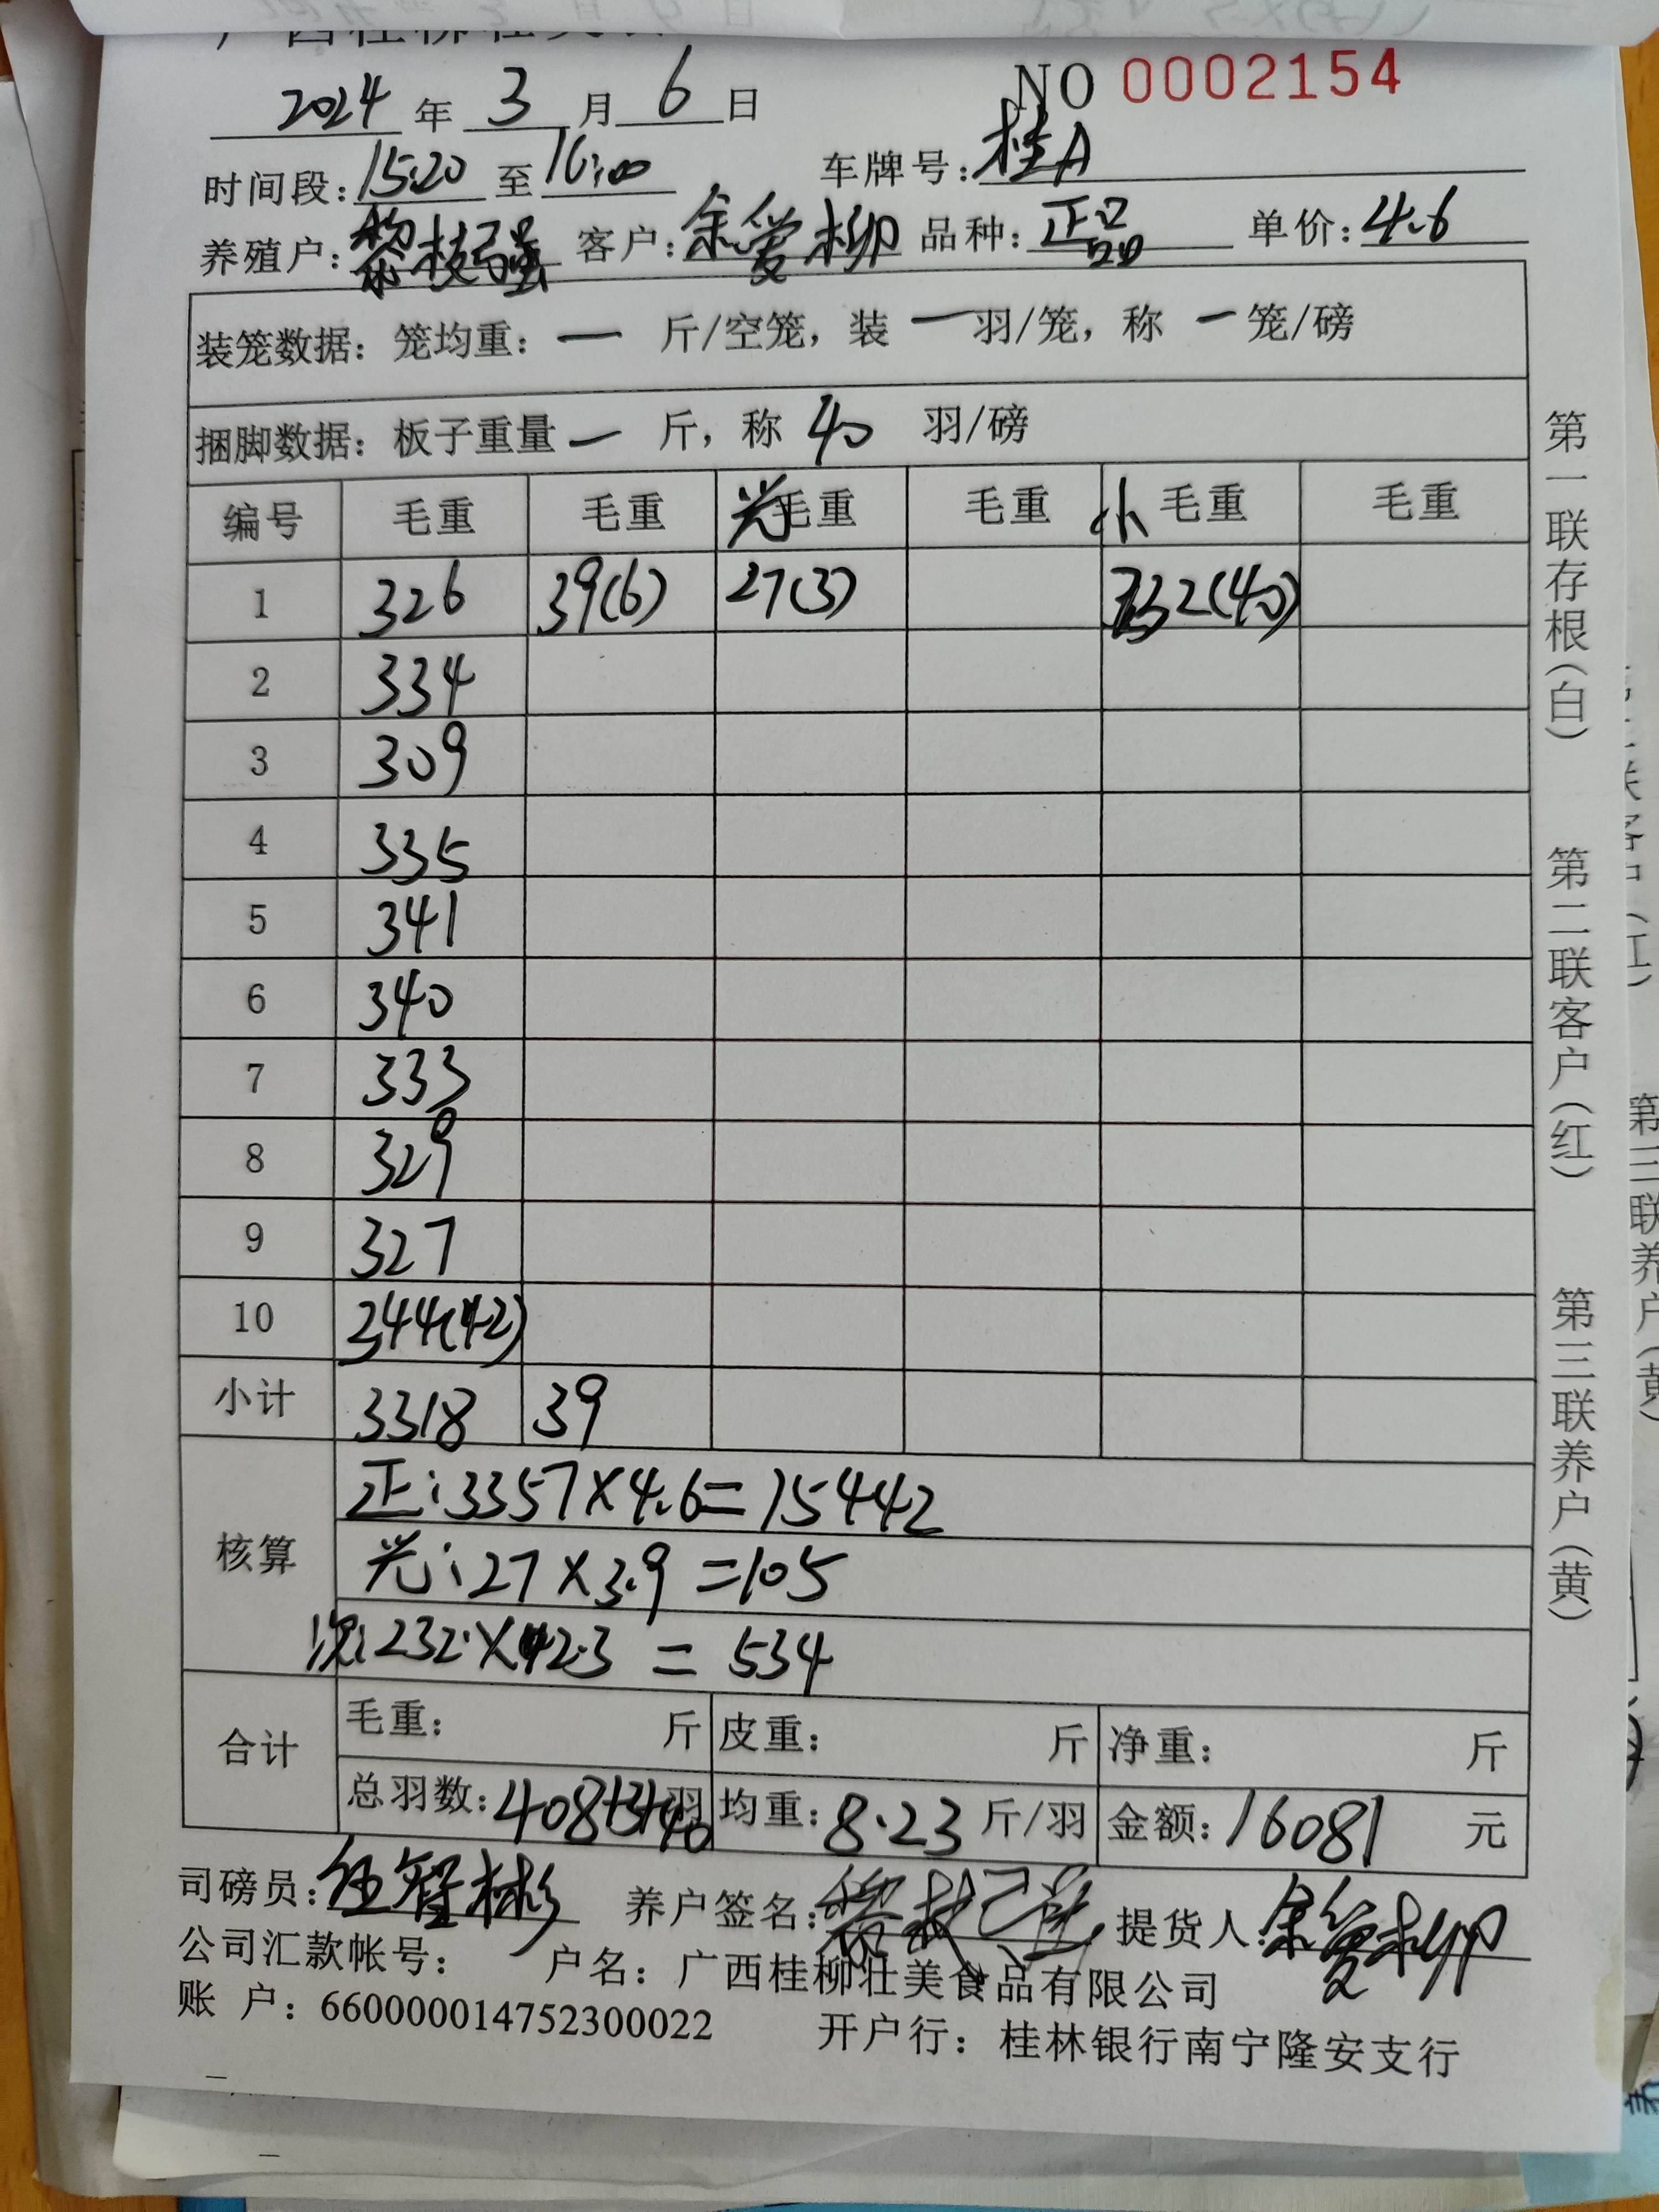 2024 年 3 月 6 日
NO 0002154
时间段: 15:20 至 16:00 车牌号: 桂A
养殖户: 黎枝强 客户: 余爱柳 品种: 正品 单价: 4.6
装笼数据: 笼均重: 一 斤/空笼, 装 一 羽/笼, 称 一 笼/磅
捆脚数据: 板子重量 一 斤, 称 40 羽/磅
编号 毛重 毛重 光毛重 毛重 小毛重 毛重
1 326 39(6) 27(3) 232(40)
2 334
3 309
4 335
5 341
6 340
7 333
8 329
9 327
10 344(42)
小计 3318 39
核算
正: 3357×4.6=15442
光: 27×3.9=105
次: 232×2.3=534
合计 毛重: 斤 皮重: 斤 净重: 斤
总羽数: 408+3+40 羽 均重: 8.23 斤/羽 金额: 16081 元
司磅员: 养户签名: 提货人: 余爱柳
公司汇款帐号: 户名: 广西桂柳壮美食品有限公司
账 户: 660000014752300022 开户行: 桂林银行南宁隆安支行
第一联存根(白) 第二联客户(红) 第三联养户(黄)